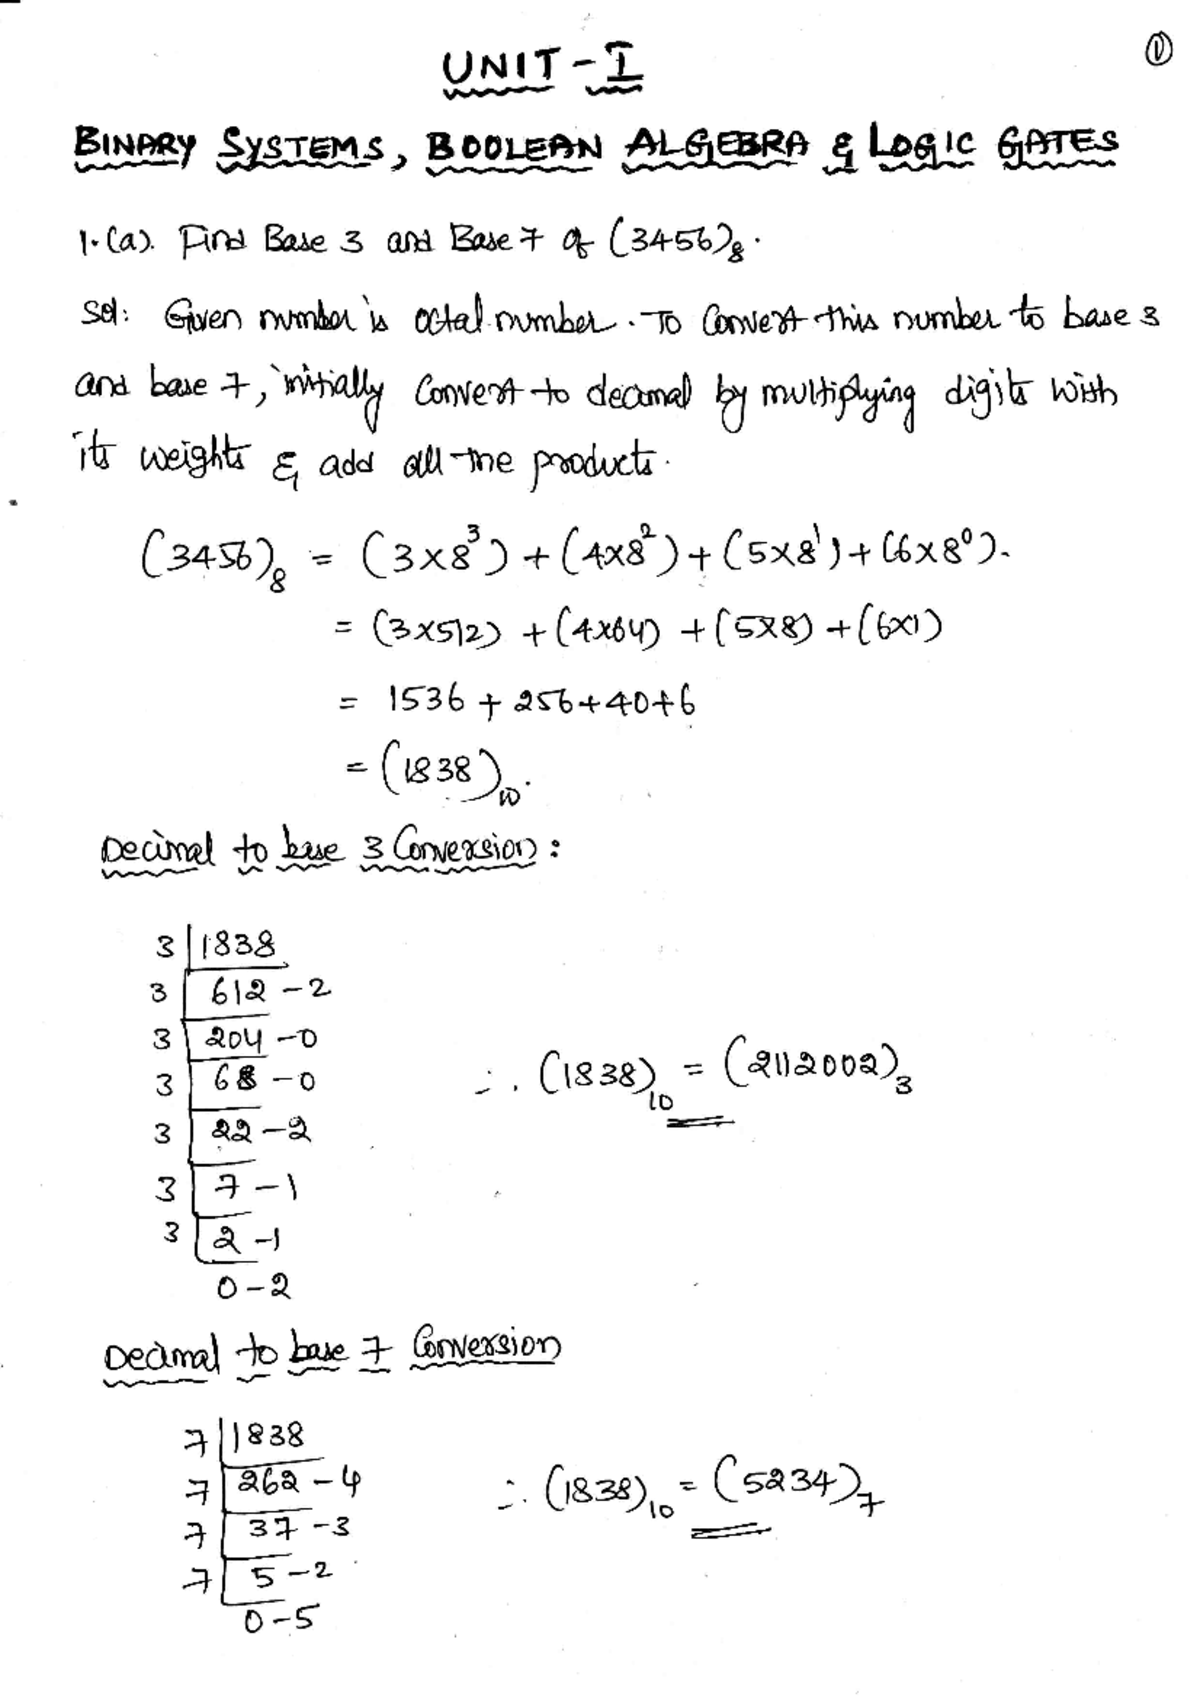 ①
UNIT - I
BINARY SYSTEMS, BOOLEAN ALGEBRA & LOGIC GATES
1.(a). Find Base 3 and Base 7 of (3456)₈.
Sol: Given number is octal number. To Convert this number to base 3
and base 7, initially Convert to decimal by multiplying digits with
its weights & add all the products.
(3456)₈ = (3×8³) + (4×8²) + (5×8¹) + (6×8⁰).
= (3×512) + (4×64) + (5×8) + (6×1)
= 1536 + 256+40+6
= (1838)₁₀.
Decimal to base 3 Conversion:
3 | 1838
3 | 612 - 2
3 | 204 - 0
3 | 68 - 0
3 | 22 - 2
3 | 7 - 1
3 | 2 - 1
0 - 2
∴ (1838)₁₀ = (2112002)₃
Decimal to base 7 Conversion
7 | 1838
7 | 262 - 4
7 | 37 - 3
7 | 5 - 2
0 - 5
∴ (1838)₁₀ = (5234)₇